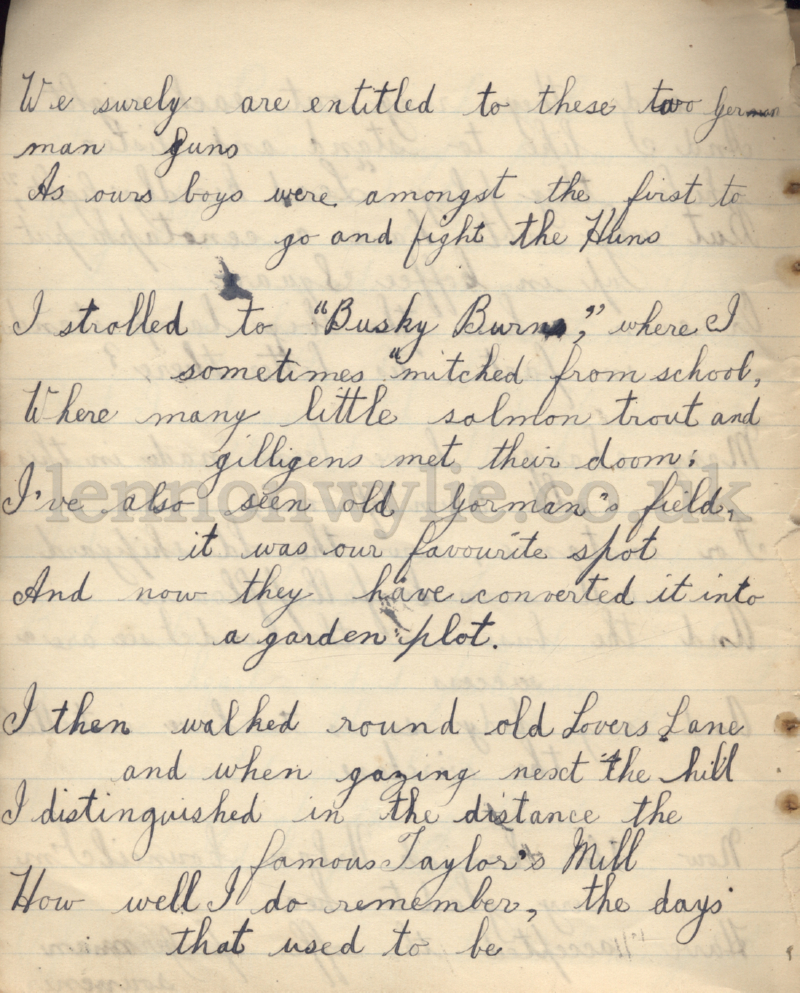 We surely are entitled to these two German
man guns
As ours boys were amongst the first to
go and fight the Huns
I strolled to "Busky Burns," where I
sometimes "mitched from school,
Where many little salmon trout and
gilligens met their doom;
lennonwylie.co.uk
I've also seen old Gorman's field,
it was our favourite spot
And now they have converted it into
a garden plot.
I then walked round old Lovers Lane
and when gazing next the hill
I distinguished in the distance the
famous Taylor's Mill
How well I do remember, the days
that used to be